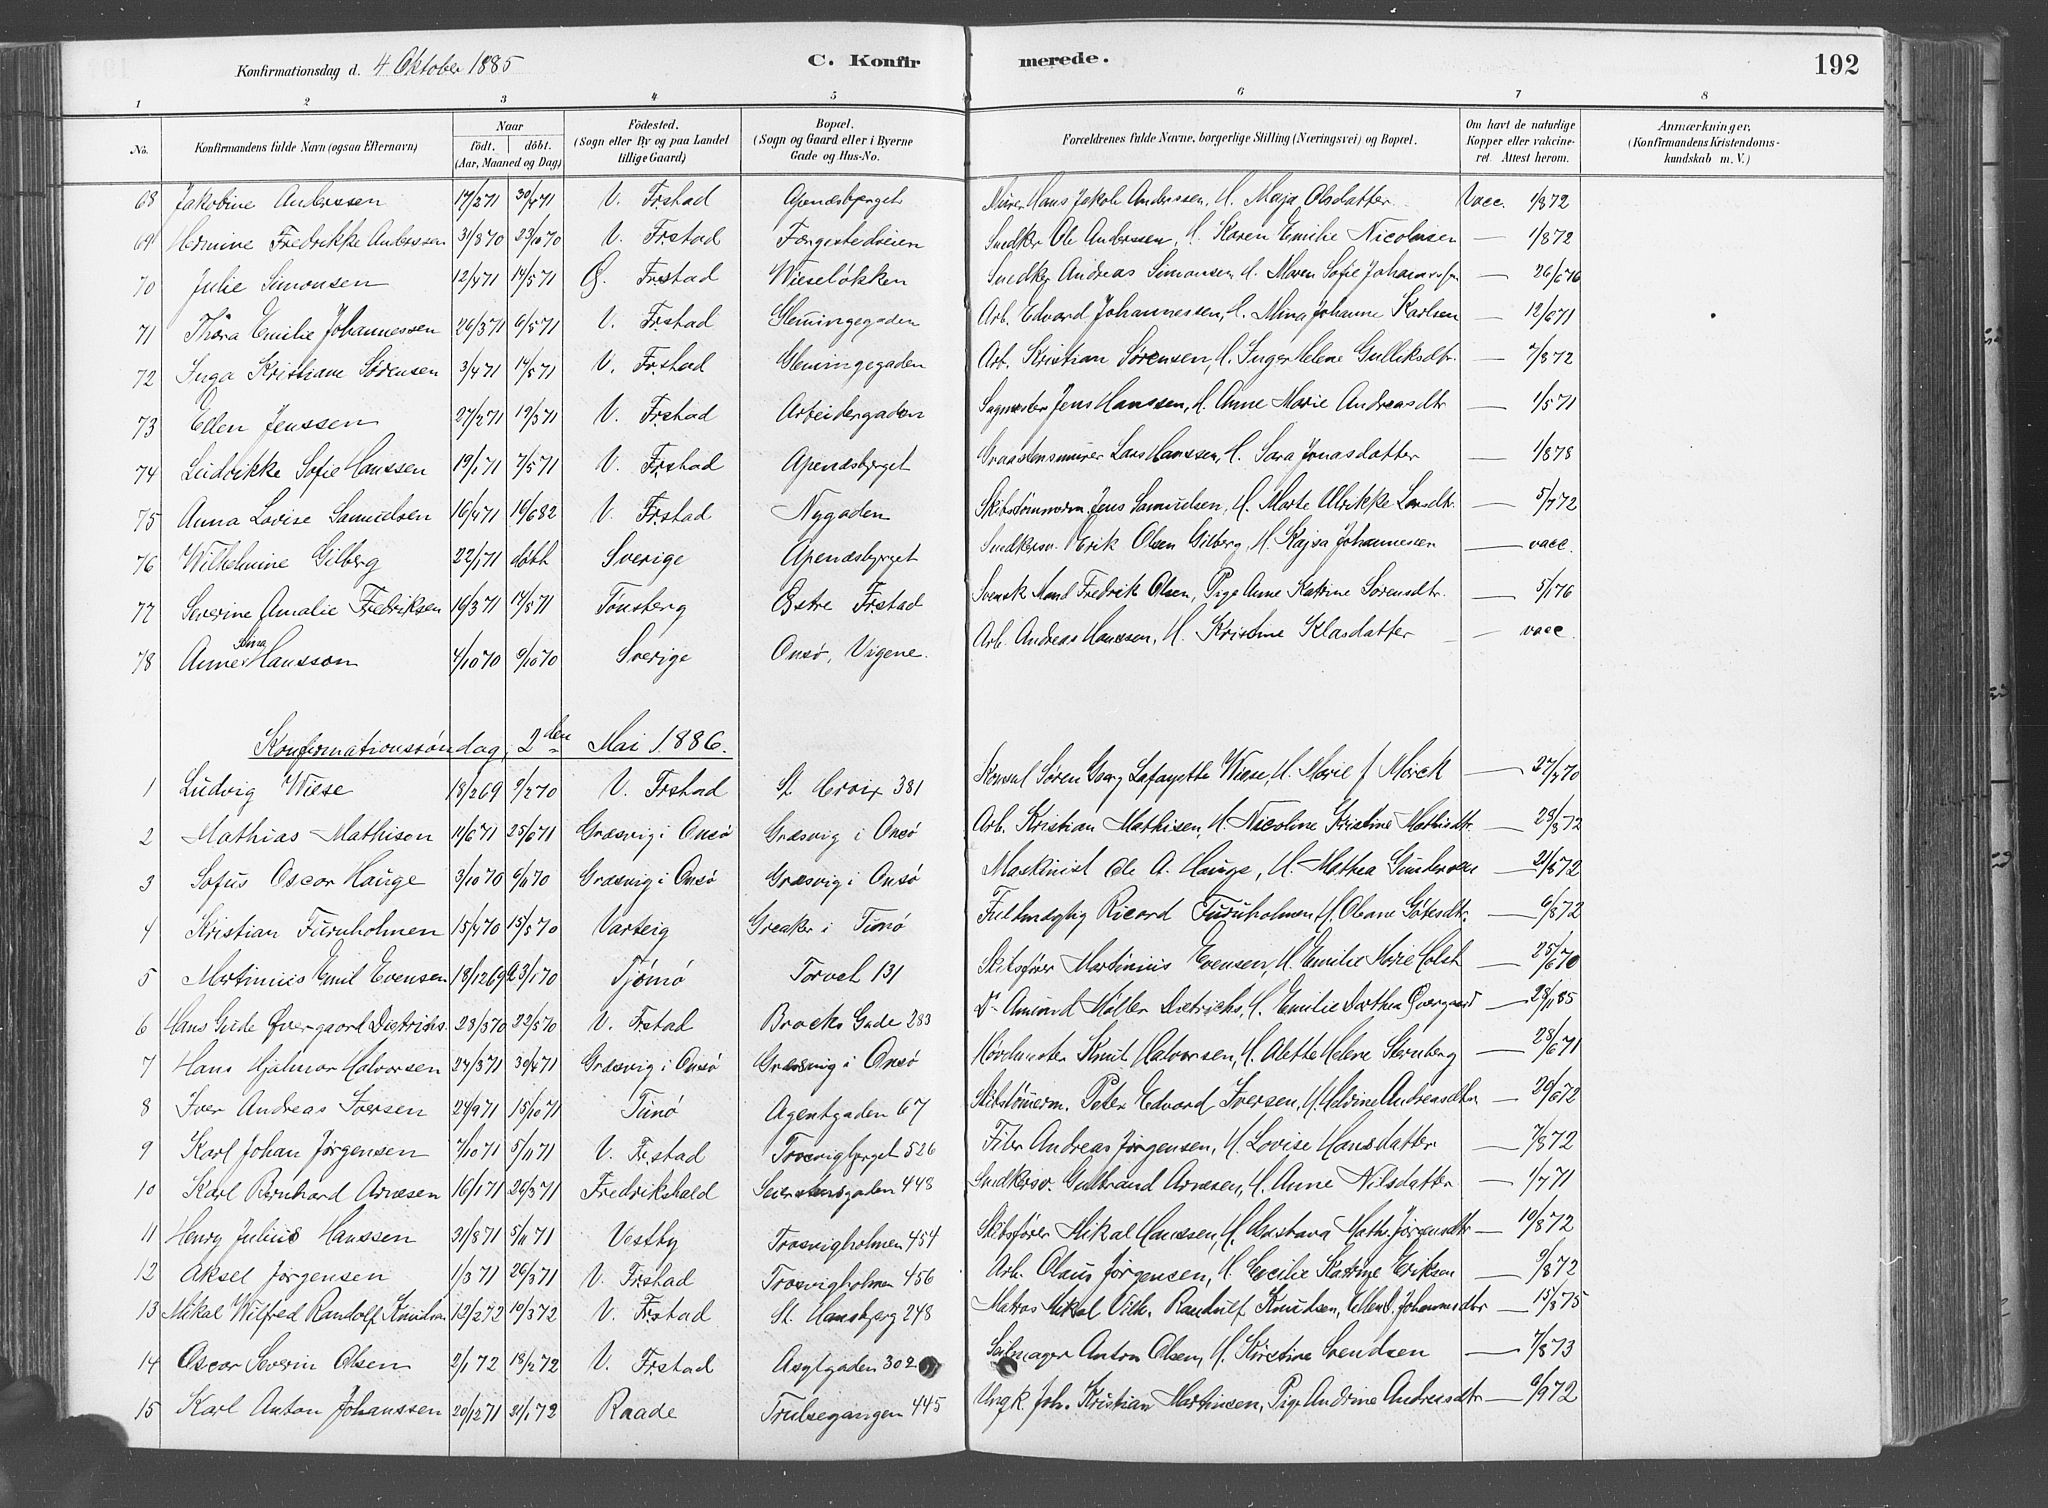 Konfirmationsdag d. 4 Oktober 1885 C. Konfirmerede. 192
1 2 3 4 5 6 7 8
No. Konfirmandens fulde Navn (ogsaa Efternavn) Naar födt. döbt. (Aar, Maaned og Dag) Födested. (Sogn eller By og paa Landet tillige Gaard) Bopæl. (Sogn og Gaard eller i Byerne Gade og Hus-No. Forældrenes fulde Navne, borgerlige Stilling (Næringsvei) og Bopæl. Om havt de naturlige Kopper eller vakcineret. Attest herom. Anmærkninger. (Konfirmandens Kristendomskundskab m. V.)
68 Jakobine Anderssen 17/2 71 30/4 71 V. Frstad Apenæsbjerget Murer Hans Jakob Anderssen, H. Maja Olsdatter Vacc. 1/8 72
69 Hermine Fredrikke Anderssen 31/8 70 23/10 70 V. Frstad Færgestedveien Snedker Ole Anderssen, H. Karen Emilie Nicolaisen — 1/8 72
70 Julie Simonsen 12/4 71 14/5 71 Ø. Frstad Wieseløkken Snedker Andreas Simonsen, H. Maren Sofie — 26/6 76
71 Thora Emilie Johannessen 26/3 71 6/5 71 V. Frstad Glemmingegaden Arb. Edvard Johannessen, H. Mina Johanne Karlsen — 12/6 71
72 Inga Kristiane Sørensen 3/4 71 14/5 71 V. Frstad Glemmingegaden Arb. Kristian Sørensen, H. Inger Helene Gulliksdtr. — 7/8 72
73 Ellen Jenssen 27/2 71 19/3 71 V. Frstad Arbeidergaden Sagmester Jens Hanssen, H. Anne Marie Andreasdtr — 1/5 71
74 Ludvikke Sofie Hanssen 19/1 71 7/5 71 V. Frstad Apenæsbjerget Graastensmurer Lars Hanssen, H. Sara Jonasdatter — 1/8 78
75 Anna Lovise Samuelsen 16/4 71 16/6 82 V. Frstad Nygaden Skibstømmerm. Jens Samuelsen, H. Marte Ulrikke Larsdtr. — 5/7 72
76 Wilhelmine Gilberg 22/1 71 døbt Sverige Apenæsbjerget Snedkersv. Erik Olsen Gilberg, H. Kajsa Johannesen — vacc.
77 Severine Amalie Fredriksen 16/3 71 14/5 71 Tønsberg Østre Frstad Svensk Mand Fredrik Olsen, Pige Anne Katrine Sørensdtr. — 5/1 76
78 Anne Stina Hansson 4/10 70 9/10 70 Sverige Onsø, Vigene. Arb. Andreas Hanssen, H. Kristine Klasdatter — vacc.
Konfirmationssøndag, 2den Mai 1886.
1 Ludvig Wiese 18/2 69 9/2 70 V. Frstad St. Croix 381 Konsul Søren Georg Lafayette Wiese, H. Marie f. Mørck — 27/7 70
2 Mathias Mathisen 11/6 71 25/6 71 Græsvig i Onsø Græsvig i Onsø Arb. Kristian Mathisen, H. Nicoline Kristine Mathisdtr. — 28/8 72
3 Sofus Oscar Hauge 3/10 70 6/11 70 Græsvig i Onsø Græsvig i Onsø Maskinist Ole A. Hauge, H. Mathea Gundersen — 21/8 72
4 Kristian Furuholmen 15/4 70 15/5 70 Varteig Greaker i Tunø Fuldmægtig Ricard Furuholmen, H. Oleane — 6/8 72
5 Martinius Emil Evensen 18/12 69 23/1 70 Tjømø Torvet 131 Skibsfører Martinius Evensen, H. Emilie Marie Holst — 25/6 70
6 Hans Gude Øvergaard Dietrichs. 23/3 70 22/5 70 V. Frstad Brocks Gade 283 Dr. Amund Møller Dietrichs, H. Emilie Dorthea Øvergaard — 28/11 85
7 Hans Hjalmar Halvorsen 24/3 71 30/4 71 Græsvig i Onsø Græsvig i Onsø Høvelmester Knut Halvorsen, H. Alette Helene Sternberg — 28/6 71
8 Iver Andreas Iversen 24/9 71 15/10 71 Tunø Agentgaden 67 Skibstømmerm. Peter Edvard Iversen, H. Helvine Andreasdtr — 20/6 72
9 Karl Johan Jørgensen 7/10 71 5/11 71 V. Frstad Trosvigberget 526 Filer Andreas Jørgensen, H. Lovise Hansdatter — 7/8 72
10 Karl Bernhard Arnesen 16/1 71 26/3 71 Fredrikshald Seierstensgaden 448 Snedkersv. Gulbrand Arnesen, H. Anne Nilsdatter — 1/7 71
11 Henry Julius Hanssen 31/8 71 5/11 71 Vestby Trosvigholmen 454 Skibsfører Mikal Hanssen, H. Gustava Math. Jørgensdtr — 10/8 72
12 Aksel Jørgensen 1/3 71 26/3 71 V. Frstad Trosvigholmen 456 Arb. Olaus Jørgensen, H. Cecilie Katrine Eriksen — 9/8 72
13 Mikal Wilfred Randolf Knudsen 12/2 72 10/3 72 V. Frstad St. Hansbjerg 248 Matros Mikal Vilh. Randulf Knudsen, Johannesdtr — 15/8 75
14 Oscar Severin Olsen 2/1 72 18/2 72 V. Frstad Asylgaden 302 Seilmager Anton Olsen, H. Kristine Svendsen — 7/8 73
15 Karl Anton Johanssen 20/12 71 21/1 72 Raade Trulsegangen 445 Ungk. Joh. Kristian Martinsen, Pige Andrine Andreasdtr — 6/9 72